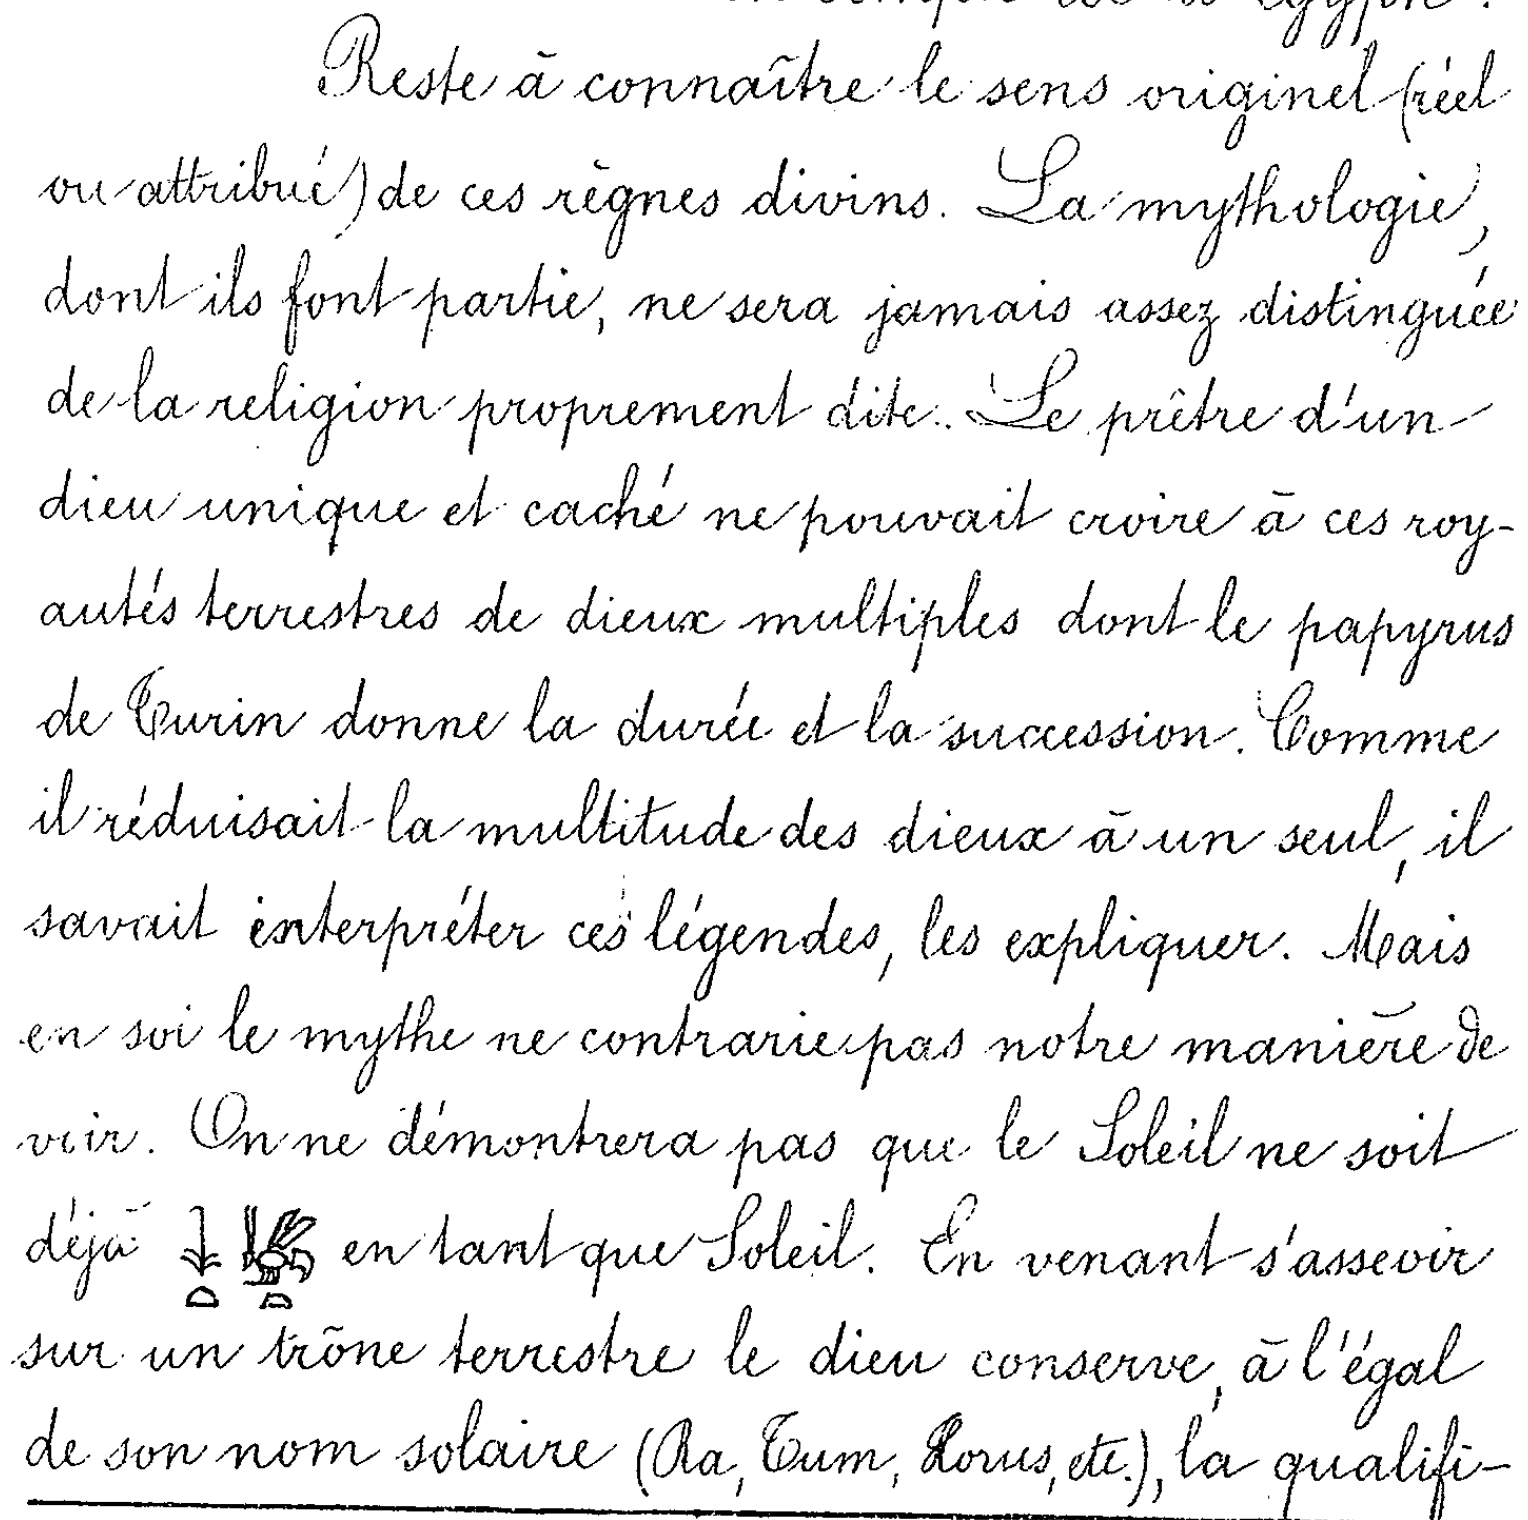 Reste à connaître le sens originel (réel
ou attribué) de ces règnes divins. La mythologie,
dont ils font partie, ne sera jamais assez distinguée
de la religion proprement dite. Le prêtre d'un
dieu unique et caché ne pouvait croire à ces roy-
autés terrestres de dieux multiples dont le papyrus
de Turin donne la durée et la succession. Comme
il réduisait la multitude des dieux à un seul, il
savait interpréter ces légendes, les expliquer. Mais
en soi le mythe ne contrarie pas notre manière de
voir. On ne démontrera pas que le Soleil ne soit
déjà 𓇓𓏏 𓆤𓏏 en tant que Soleil. En venant s'asseoir
sur un trône terrestre le dieu conserve, à l'égal
de son nom solaire (Ra, Tum, Horus, etc.), la qualifi-